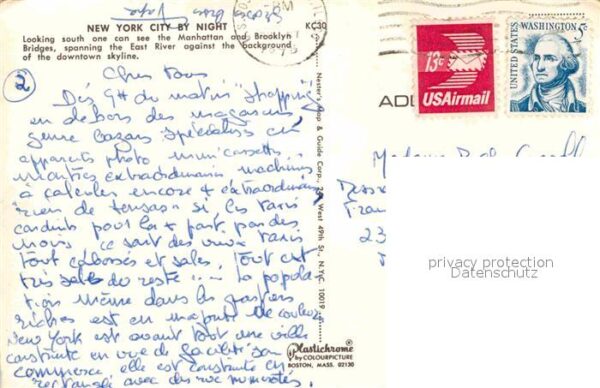 NEW YORK CITY BY NIGHT
KC30
Looking south one can see the Manhattan and Brooklyn
Bridges, spanning the East River against the background
of the downtown skyline.
②
Chers tous
Dès 9H du matin "shopping"
en dehors des magasins
genre bazars spécialisés en
appareils photo mini cassettes
montres extraordinaires machines
à calculer encore + extraordinaires
rien de "sensas" si les taxis
conduits pour la + part par des
noirs ce sont des vieux taxis
tout cabossés et sales. Tout est
très sale du reste ... La popula-
tion même dans les quartiers
riches est en majorité de couleur
New York est avant tout une ville
construite en vue de faciliter son
commerce, elle est construite en
rectangle avec des rues numérotées.
Nester's Map & Guide Corp., West 49th St., N.Y.C. 10019
Plastichrome
by COLOURPICTURE
BOSTON, MASS. 02130
13c
USAirmail
UNITED STATES
WASHINGTON
5c
Madame
23
privacy protection
Datenschutz